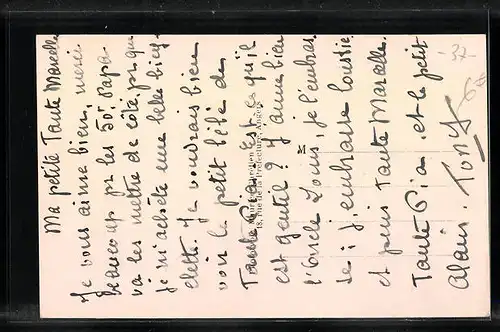 Ma petite Tante Marcelle
Je vous aime bien, merci
beaucoup pr les 50f. Papa
va les mettre de côté pr que
je m'achète une belle bicy-
clette. Je voudrais bien
voir le petit bébé de
Tante Pia. Est ce qu'il
est gentil ? J'aime bien
l'Oncle Louis, je l'embras
se ; J'embrasse
et puis Tante Marcelle.
Tante Pia. et le petit
Alain. Tony
18, Rue de la Préfecture, Angers
- 37 -